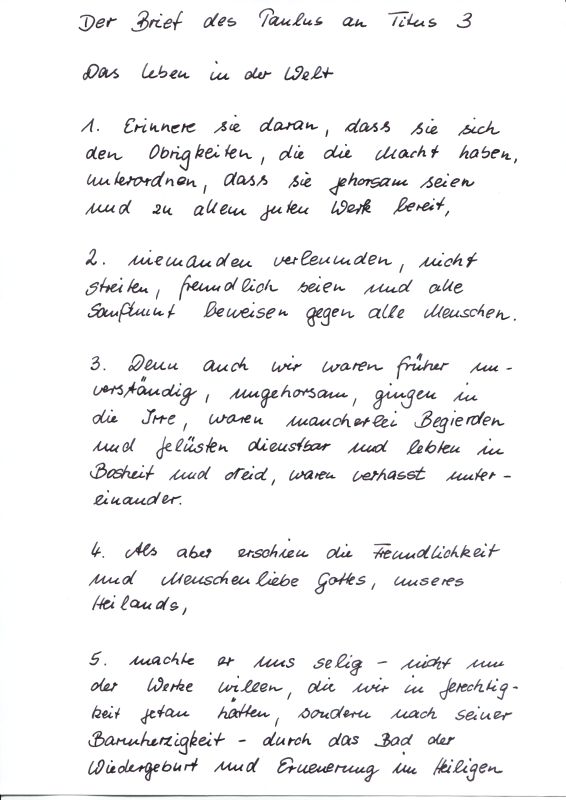 Der Brief des Paulus an Titus 3
Das Leben in der Welt
1. Erinnere sie daran, dass sie sich
den Obrigkeiten, die die Macht haben,
unterordnen, dass sie gehorsam seien
und zu allem guten Werk bereit,
2. niemanden verleumden, nicht
streiten, freundlich seien und alle
Sanftmut beweisen gegen alle Menschen.
3. Denn auch wir waren früher un-
verständig, ungehorsam, gingen in
die Irre, waren mancherlei Begierden
und Gelüsten dienstbar und lebten in
Bosheit und Neid, waren verhasst unter-
einander.
4. Als aber erschien die Freundlichkeit
und Menschenliebe Gottes, unseres
Heilands,
5. machte er uns selig - nicht um
der Werke willen, die wir in Gerechtig-
keit getan hätten, sondern nach seiner
Barmherzigkeit - durch das Bad der
Wiedergeburt und Erneuerung im Heiligen